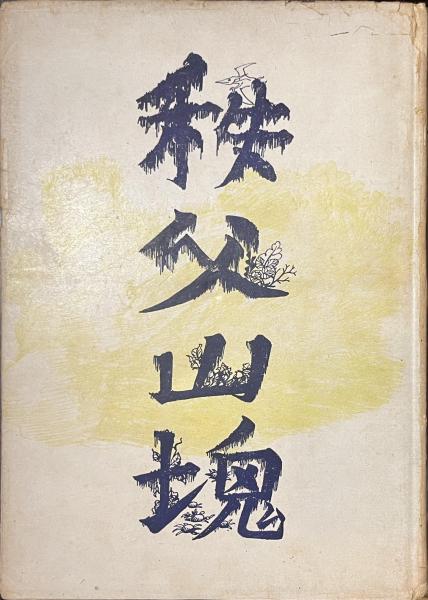 秩父山塊